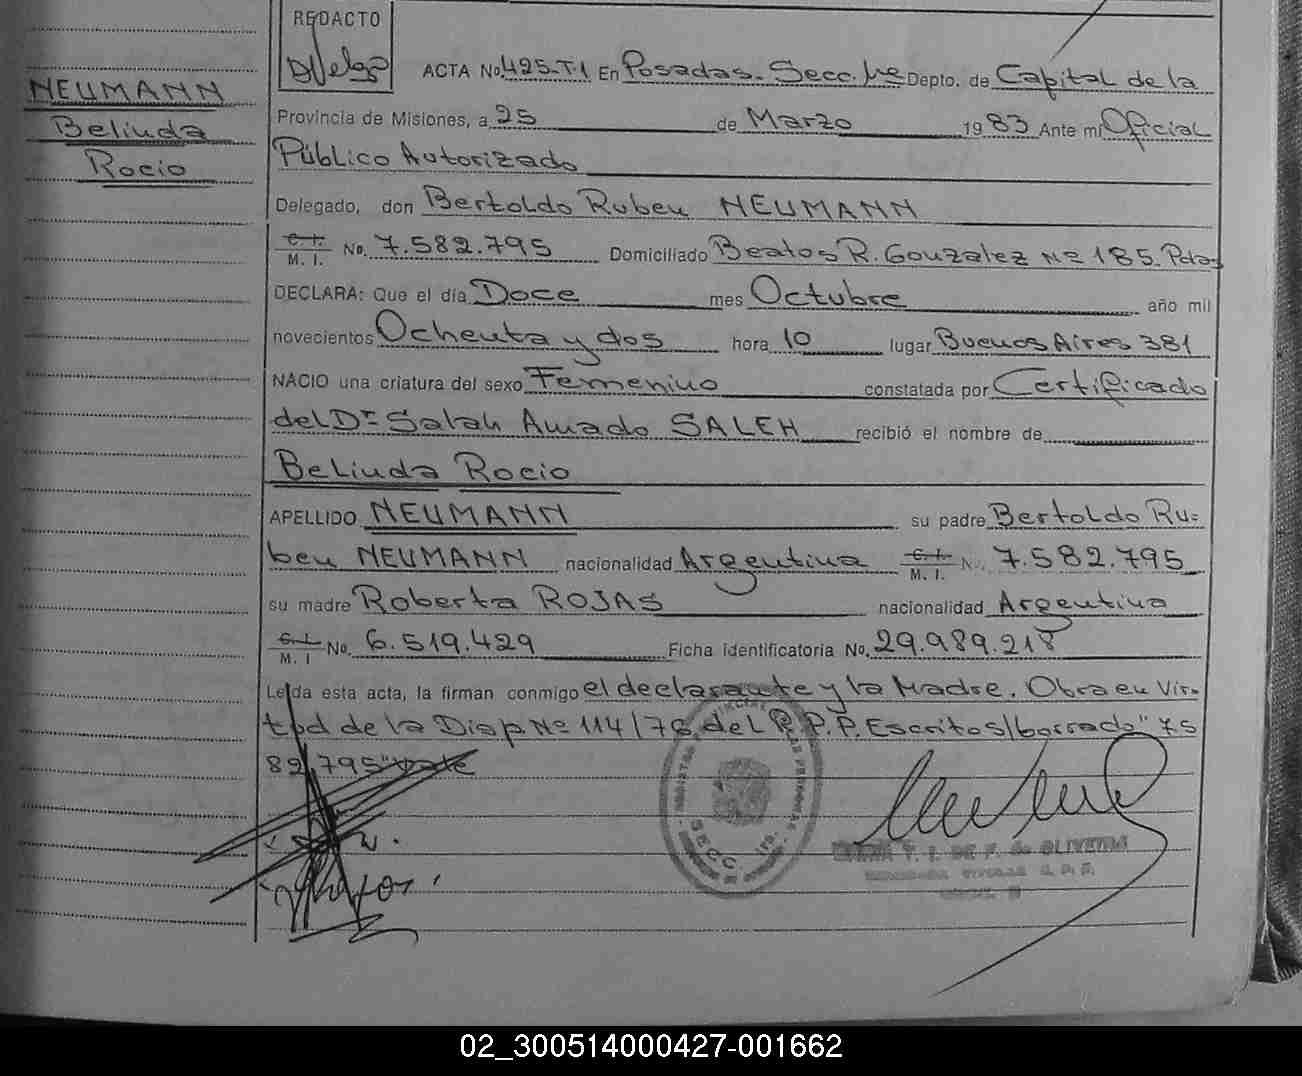 REDACTO
NEUMANN
Belinda
Rocio
ACTA No. 425-T.1 En Posadas. Secc. 1ra Depto. de Capital de la
Provincia de Misiones, a 25 de Marzo 1983 Ante mí Oficial
Público Autorizado
Delegado, don Bertoldo Ruben NEUMANN
C. I.
M. I. No. 7.582.795 Domiciliado Beatos R. Gonzalez Nº 185. Pdas
DECLARA: Que el día Doce mes Octubre año mil
novecientos Ochenta y dos hora 10 lugar Buenos Aires 381
NACIO una criatura del sexo Femenino constatada por Certificado
del Dr. Salah Amado SALEH recibió el nombre de
Belinda Rocio
APELLIDO NEUMANN su padre Bertoldo Ru-
ben NEUMANN nacionalidad Argentina C. I. M. I. No. 7.582.795
su madre Roberta ROJAS nacionalidad Argentina
C. I. M. I No. 6.519.429 Ficha identificatoria No. 29.989.218
Leída esta acta, la firman conmigo el declarante y la Madre. Obra en Vir-
tud de la Disp. Nº 114/76 del R.P.P. Escritos/borrado "75
82.795" Vale
SECC. 1ra.
DE OLIVEIRA
02_300514000427-001662